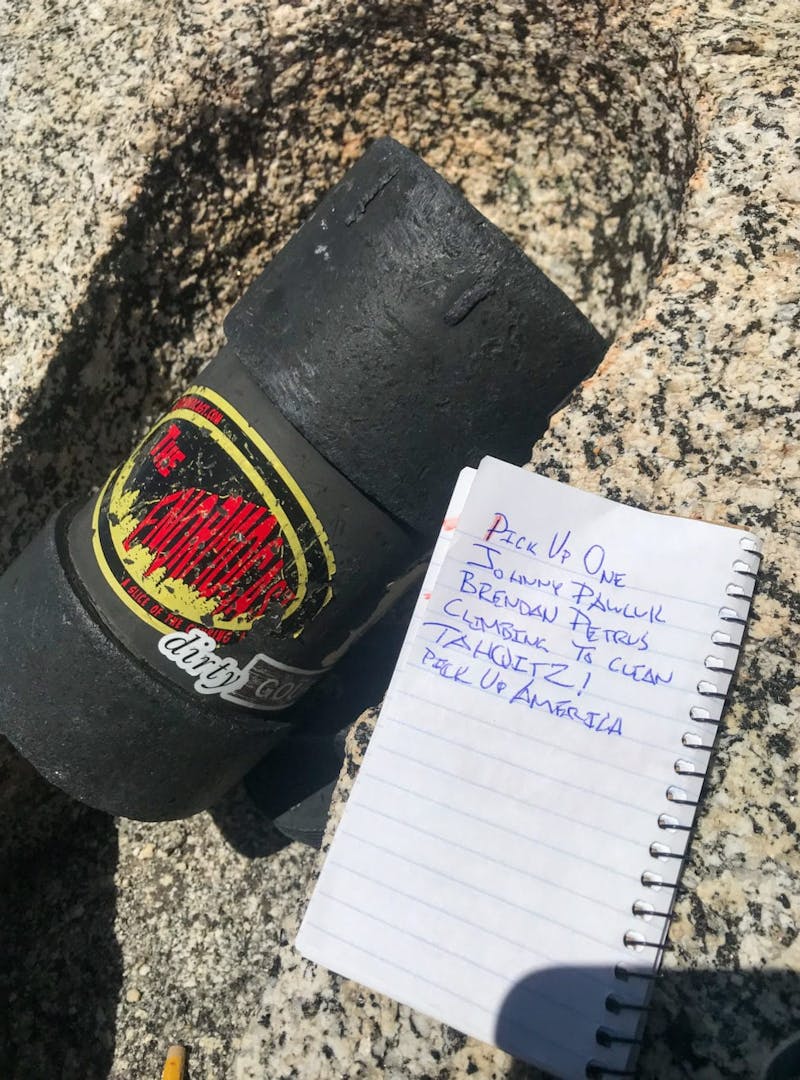 THE
ENORMOCAST
A SLICE OF THE CLIMBING
dirty
GOU
PICK UP ONE
JOHNNY PAWLUK
BRENDAN PETRUS
CLIMBING TO CLEAN
TAHQUITZ!
PICK UP AMERICA